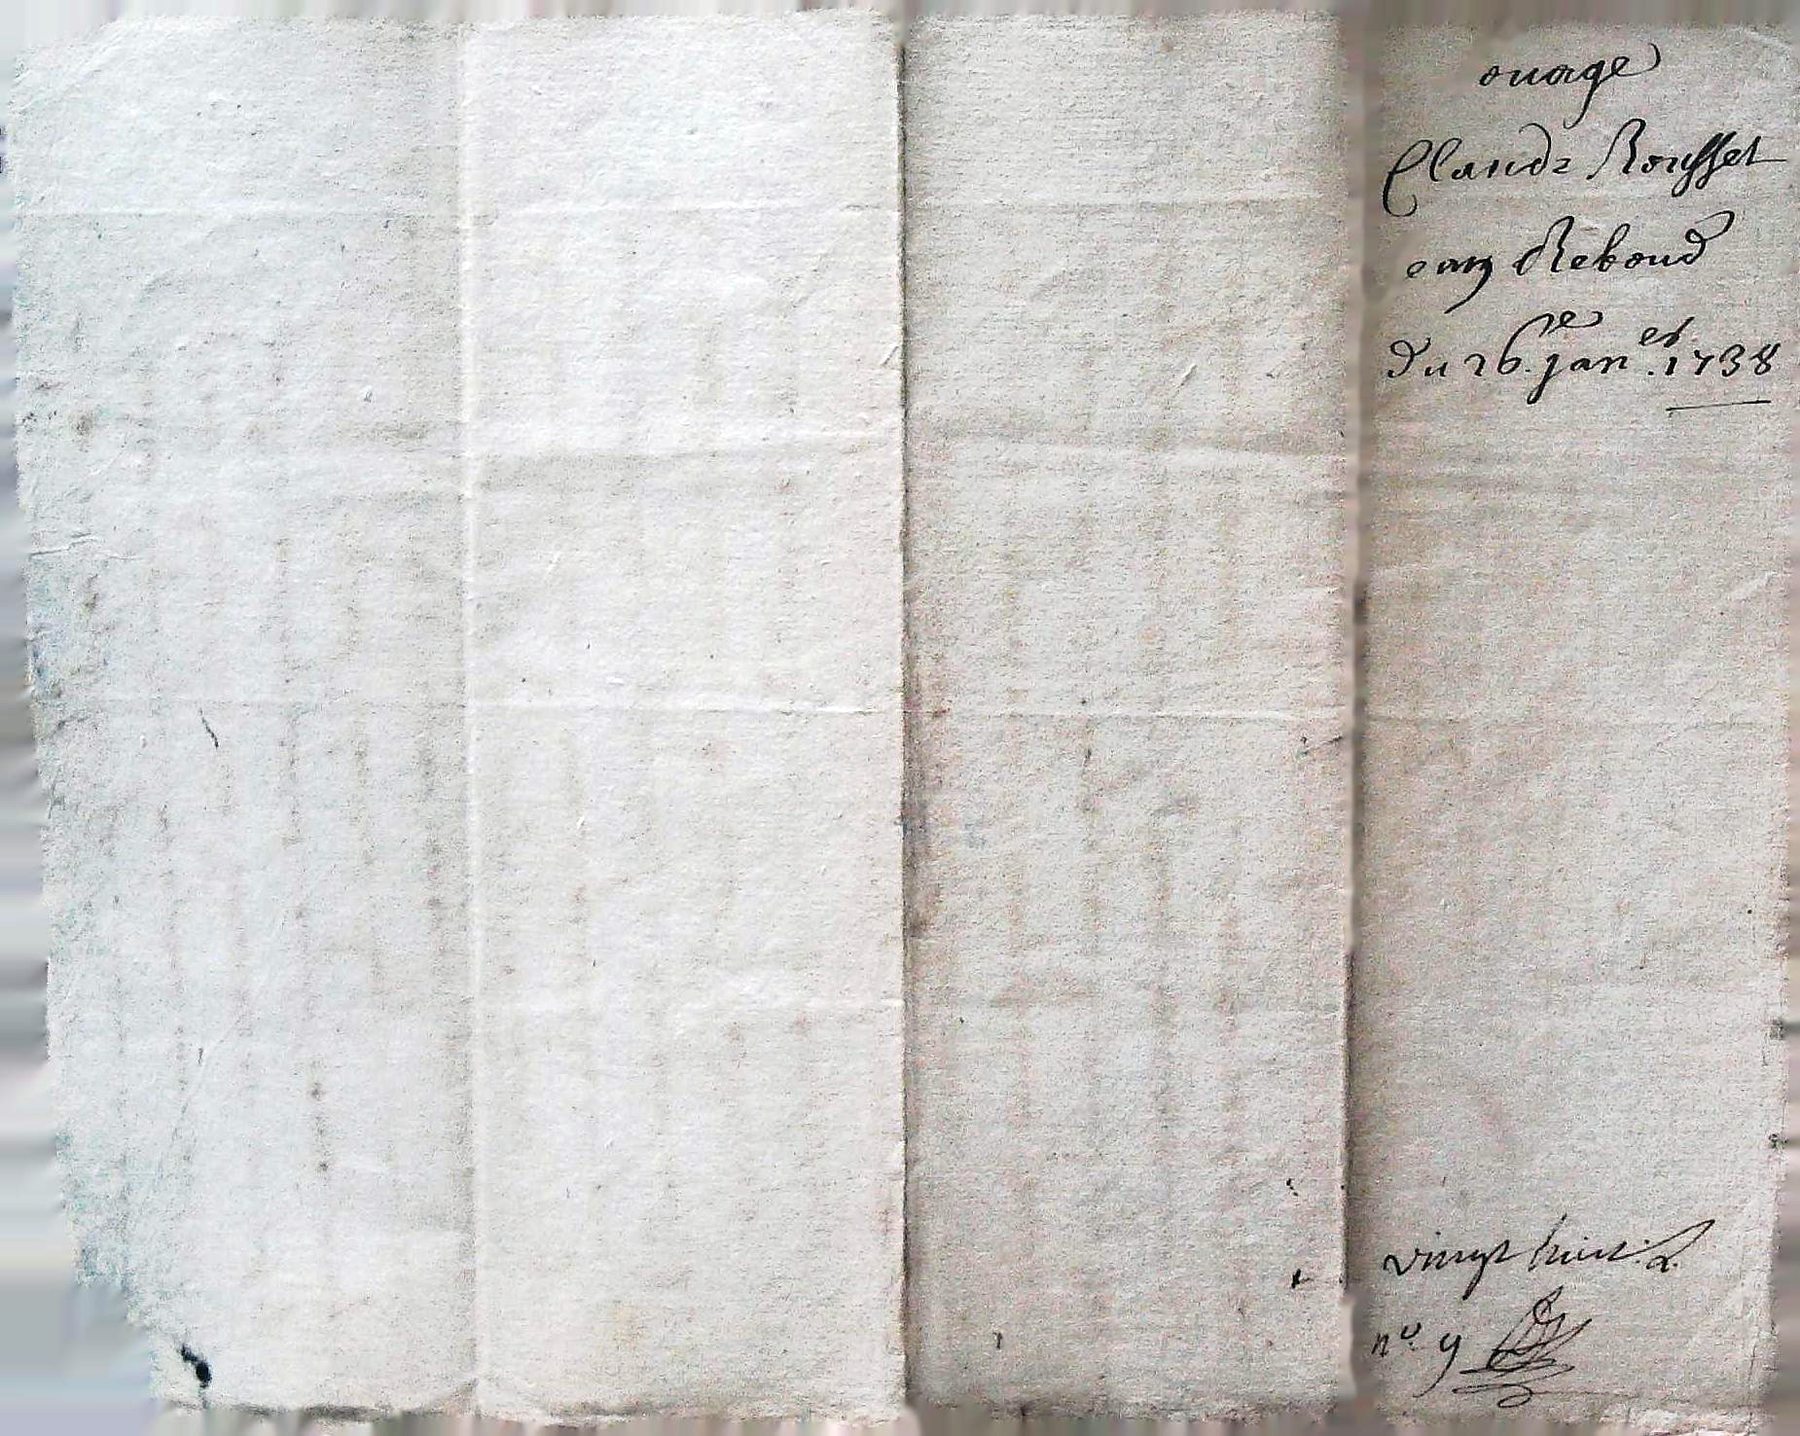 ouage
Claude Rousset
Reboud
du 26.e jan.er 1738
vingt huit
n.o 9